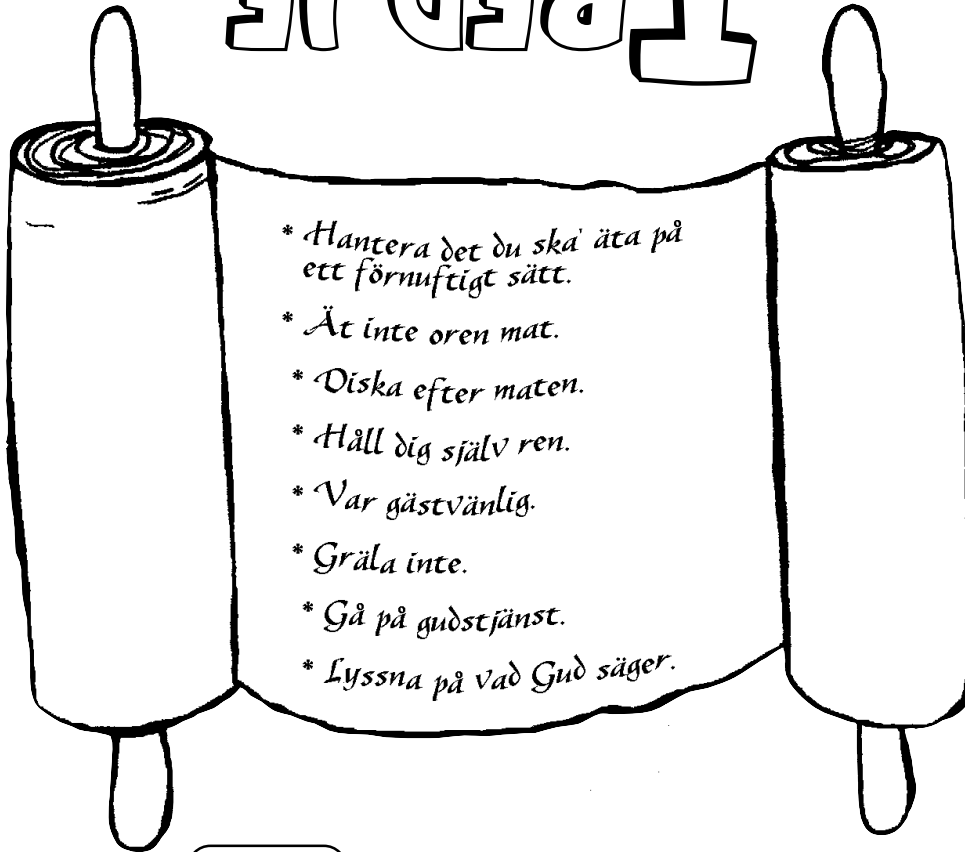 * Hantera det du ska' äta på
ett förnuftigt sätt.
* Ät inte oren mat.
* Diska efter maten.
* Håll dig själv ren.
* Var gästvänlig.
* Gräla inte.
* Gå på gudstjänst.
* Lyssna på vad Gud säger.